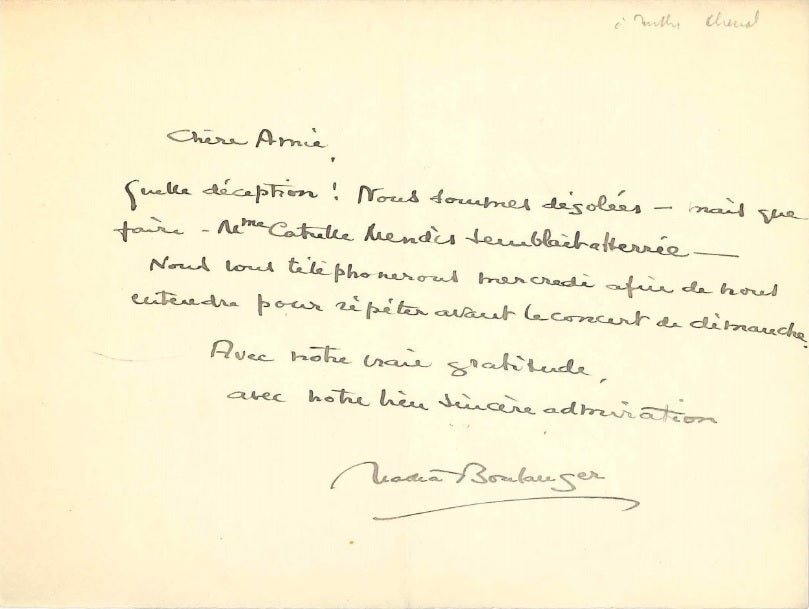 à Mlle Chenal
Chère Amie,
Quelle déception ! Nous sommes désolées — mais que
faire - Mme Catulle Mendès semblait atterrée —
Nous vous téléphonerons mercredi afin de nous
entendre pour répéter avant le concert de dimanche.
Avec notre vraie gratitude,
avec notre bien sincère admiration
Nadia Boulanger